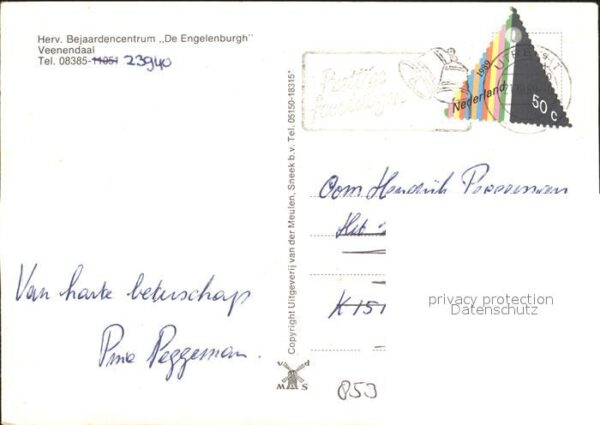 Herv. Bejaardencentrum „De Engelenburgh"
Veenendaal
Tel. 08385-11051 23940
Prettige
feestdagen
1989
Nederland
50 c
UTRE
Copyright Uitgeverij van der Meulen, Sneek b.v. Tel. 05150-18315*
Oom Hendrik Peggeman
Het
K 151
privacy protection
Datenschutz
Van harte beterschap
Peggeman.
853